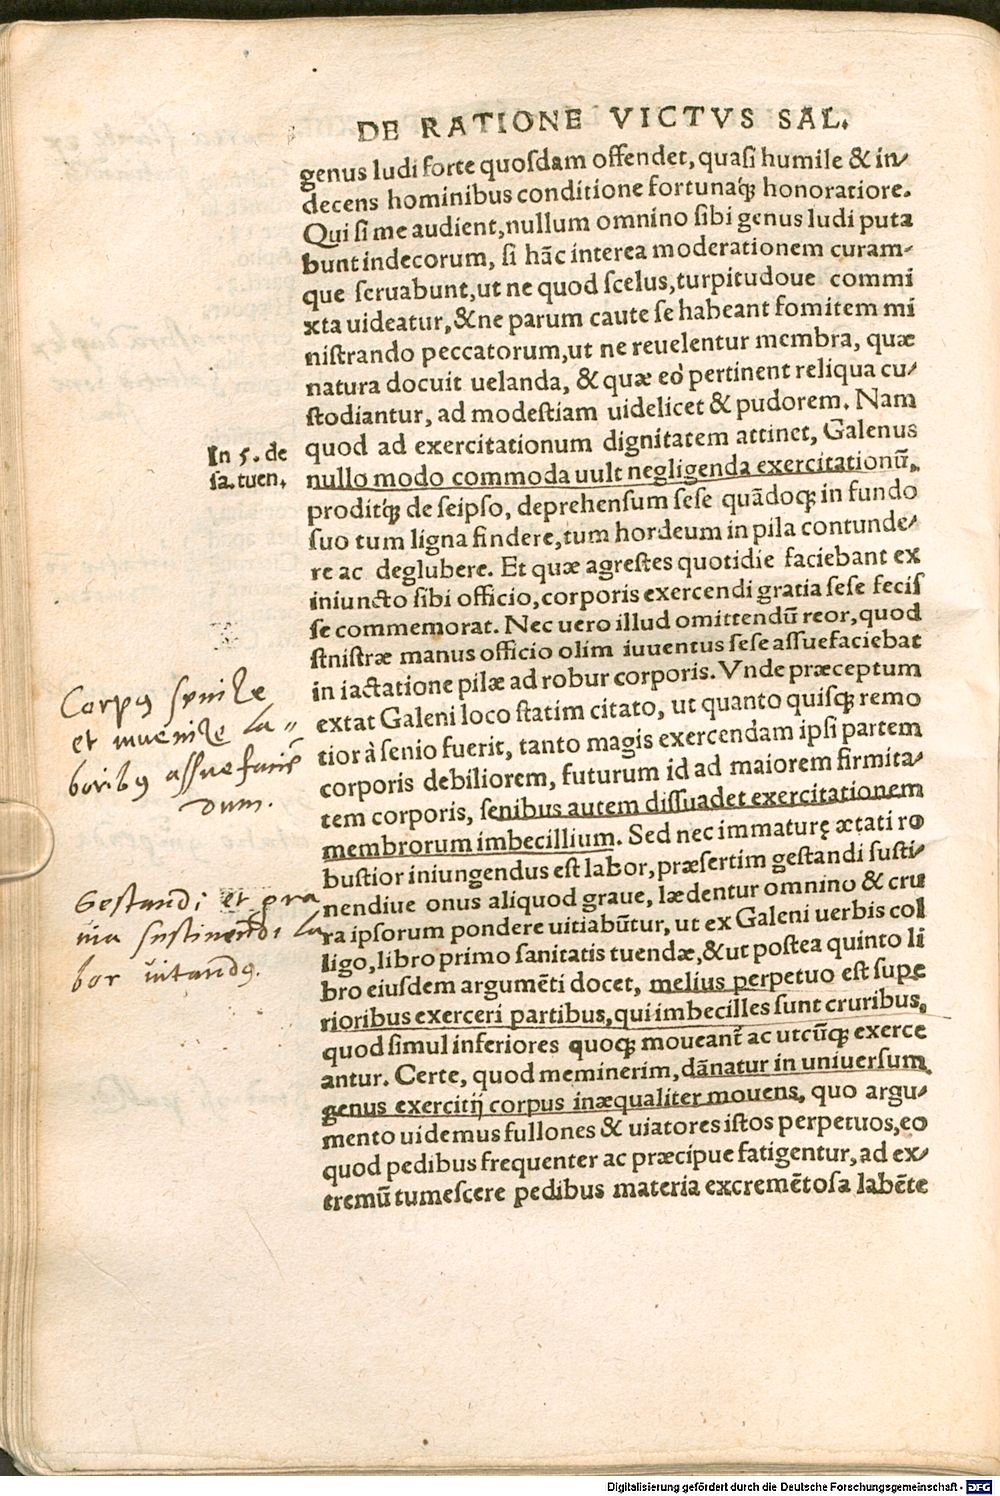 DE RATIONE VICTVS SAL.
genus ludi forte quosdam offendet, quasi humile & in/
decens hominibus conditione fortunaq́ꝫ honoratiore.
Qui si me audient, nullum omnino sibi genus ludi puta
bunt indecorum, si hãc interea moderationem curam-
que seruabunt, ut ne quod scelus, turpitudoue commi
xta uideatur, & ne parum caute se habeant fomitem mi
nistrando peccatorum, ut ne reuelentur membra, quæ
natura docuit uelanda, & quæ eò pertinent reliqua cu/
stodiantur, ad modestiam uidelicet & pudorem. Nam
quod ad exercitationum dignitatem attinet, Galenus
In 5. de
sa. tuen.
nullo modo commoda uult negligenda exercitationũ,
proditq́ꝫ de seipso, deprehensum sese quãdoqꝫ in fundo
suo tum ligna findere, tum hordeum in pila contunde/
re ac deglubere. Et quæ agrestes quotidie faciebant ex
iniuncto sibi officio, corporis exercendi gratia sese fecis
se commemorat. Nec uero illud omittendũ reor, quod
stnistræ manus officio olim iuuentus sese assuefaciebat
in iactatione pilæ ad robur corporis. Vnde præceptum
extat Galeni loco statim citato, ut quanto quisqꝫ remo
tior à senio fuerit, tanto magis exercendam ipsi partem
corporis debiliorem, futurum id ad maiorem firmita-
tem corporis, senibus autem dissuadet exercitationem
membrorum imbecillium. Sed nec immaturę ætati ro
bustior iniungendus est labor, præsertim gestandi susti/
nendiue onus aliquod graue, lædentur omnino & cru
ra ipsorum pondere uitiabũtur, ut ex Galeni uerbis col
ligo, libro primo sanitatis tuendæ, & ut postea quinto li
bro eiusdem argumẽti docet, melius perpetuo est supe
rioribus exerceri partibus, qui imbecilles sunt cruribus,
quod simul inferiores quoqꝫ moueant̃ ac utcũqꝫ exerce
antur. Certe, quod meminerim, dãnatur in uniuersum
genus exercitij corpus inæqualiter mouens, quo argu-
mento uidemus fullones & uiatores istos perpetuos, eo
quod pedibus frequenter ac præcipue fatigentur, ad ex/
tremũ tumescere pedibus materia excremẽtosa labẽte
Corpꝰ senile
et iuuenile la-
boribꝰ assuefaciẽ
dum.
Gestandi et gra
uia sustinendi la
bor uitandꝰ.
Digitalisierung gefördert durch die Deutsche Forschungsgemeinschaft - DFG